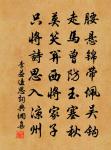 腰悬锦带佩吴钩
走马曾防玉塞秋
莫笑关西将家子
只将诗思入凉州
李益边思词典网集